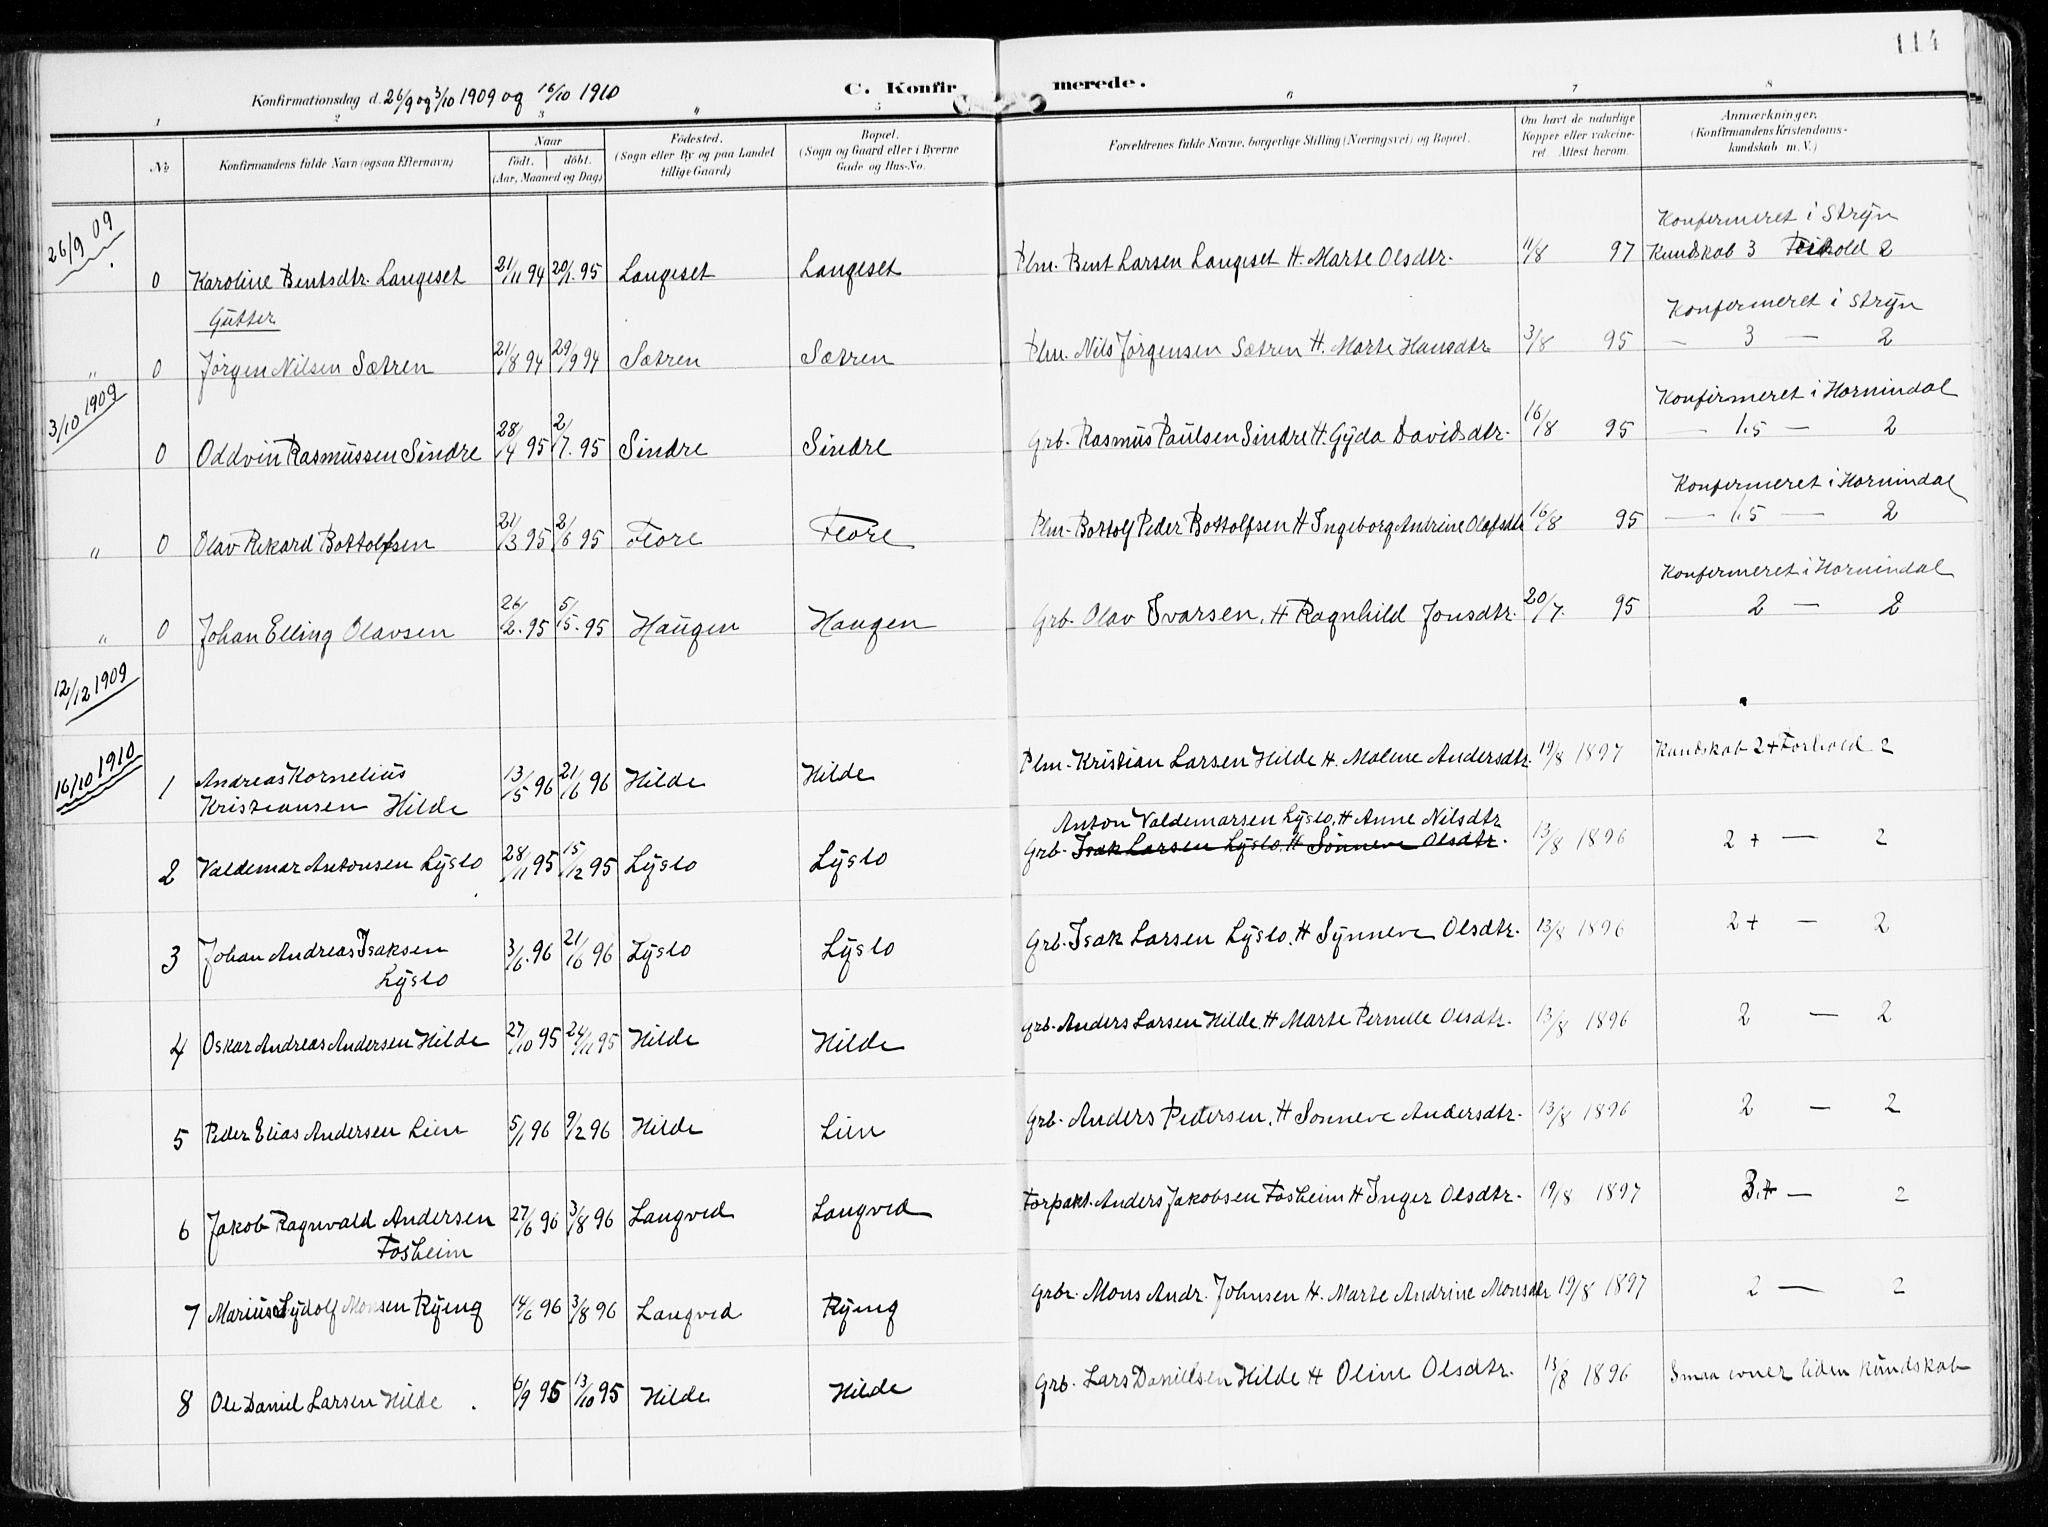 114
Konfirmationsdag d. 26/9 og 3/10 1909 og 16/10 1910 C. Konfirmerede.
1 2 3 " 5 6 7 8
No
Konfirmandens fulde Navn (ogsaa Efternavn)
Naar
født. døbt.
(Aar, Maaned og Dag)
Födested.
(Sogn eller By og paa Landet
tillige Gaard)
Bopæl.
(Sogn og Gaard eller i Byerne
Gade og Hus-No.
Forældrenes fulde Navne, borgerlige Stilling (Næringsvei) og Bopæl.
Om havt de naturlige
Kopper eller vakcine-
ret. Attest herom.
Anmærkninger.
(Konfirmandens Kristendoms-
kundskab m. V.)
26/9 09
Konfermeret i Stryn
0 Karoline Bentsdtr. Langeset 21/11 94 20/1. 95 Langeset Langeset Plm. Bent Larsen Langeset H. Marte Olsdtr. 11/8 97 Kundskab 3 Forhold 2
Gutter
Konfermeret i Stryn
" 0 Jørgen Nilsen Sætren 21/8 94 29/9 94 Sætren Sætren Plm. Nils Jørgensen Sætren H. Marte Hansdtr 3/8 95 — 3 — 2
3/10 1909
Konfirmeret i Hornindal
0 Oddvin Rasmussen Sindre 28/4 95 2/7. 95 Sindre Sindre Grb. Rasmus Paulsen Sindre H. Gyda Davidsdtr. 16/8 95 — 1.5 — 2
Konfermeret i Hornindal
" 0 Olav Rikard Bottolfsen 21/3 95 2/6 95 Flore Flore Plm. Bottolf Peder Bottolfsen H Ingeborg Andrine Olafsdtr 16/8 95 — 1.5 — 2
Konfermeret i Hornindal
" 0 Johan Elling Olavsen 26/2. 95 5/5. 95 Haugen Haugen Grb. Olav Ivarsen, H Ragnhild Jonsdtr. 20/7. 95 2 — 2
12/12 1909
16/10 1910
1 Andreas Kornelius
Kristiansen Hilde 13/5 96 21/6 96 Hilde Hilde Plm. Kristian Larsen Hilde H. Malene Andersdtr. 19/8 1897 Kundskab 2+ Forhold 2
Anton Valdemarsen Lyslo, H Anne Nilsdtr
2 Valdemar Antonsen Lyslo 28/11 95 15/12 95 Lyslo Lyslo Grb. Isak Larsen Lyslo. H Sønneve Olsdtr. 13/8 1896 2 + — 2
3 Johan Andreas Isaksen
Lyslo 3/6. 96 21/6 96 Lyslo Lyslo Grb. Isak Larsen Lyslo. H Synneve Olsdtr. 13/8 1896 2+ — 2
4 Oskar Andreas Andersen Hilde 27/10 95 24/11 95 Hilde Hilde Grb. Anders Larsen Hilde. H Marte Pernille Olsdtr. 13/8 1896 2 — 2
5 Peder Elias Andersen Lien 5/1 96 9/2 96 Hilde Lien Grb. Anders Pedersen, H Sønneve Andersdtr. 13/8 1896 2 — 2
6 Jakob Ragnvald Andersen
Fosheim 27/6 96 3/8 96 Langved Langved Forpakt. Anders Jakobsen Fosheim H Inger Olsdtr. 19/8 1897 3.+ — 2
7 Marius Lydolf Monsen Ryeng 14/6 96 3/8 96 Langved Ryeng Grbr. Mons Andr. Johnsen H. Marte Andrine Monsdtr 19/8 1897 2 — 2
8 Ole Daniel Larsen Hilde 6/9 95 13/10 95 Hilde Hilde Grb. Lars Danielsen Hilde H Oline Olsdtr. 13/8 1896 Smaa evner liden kundskab